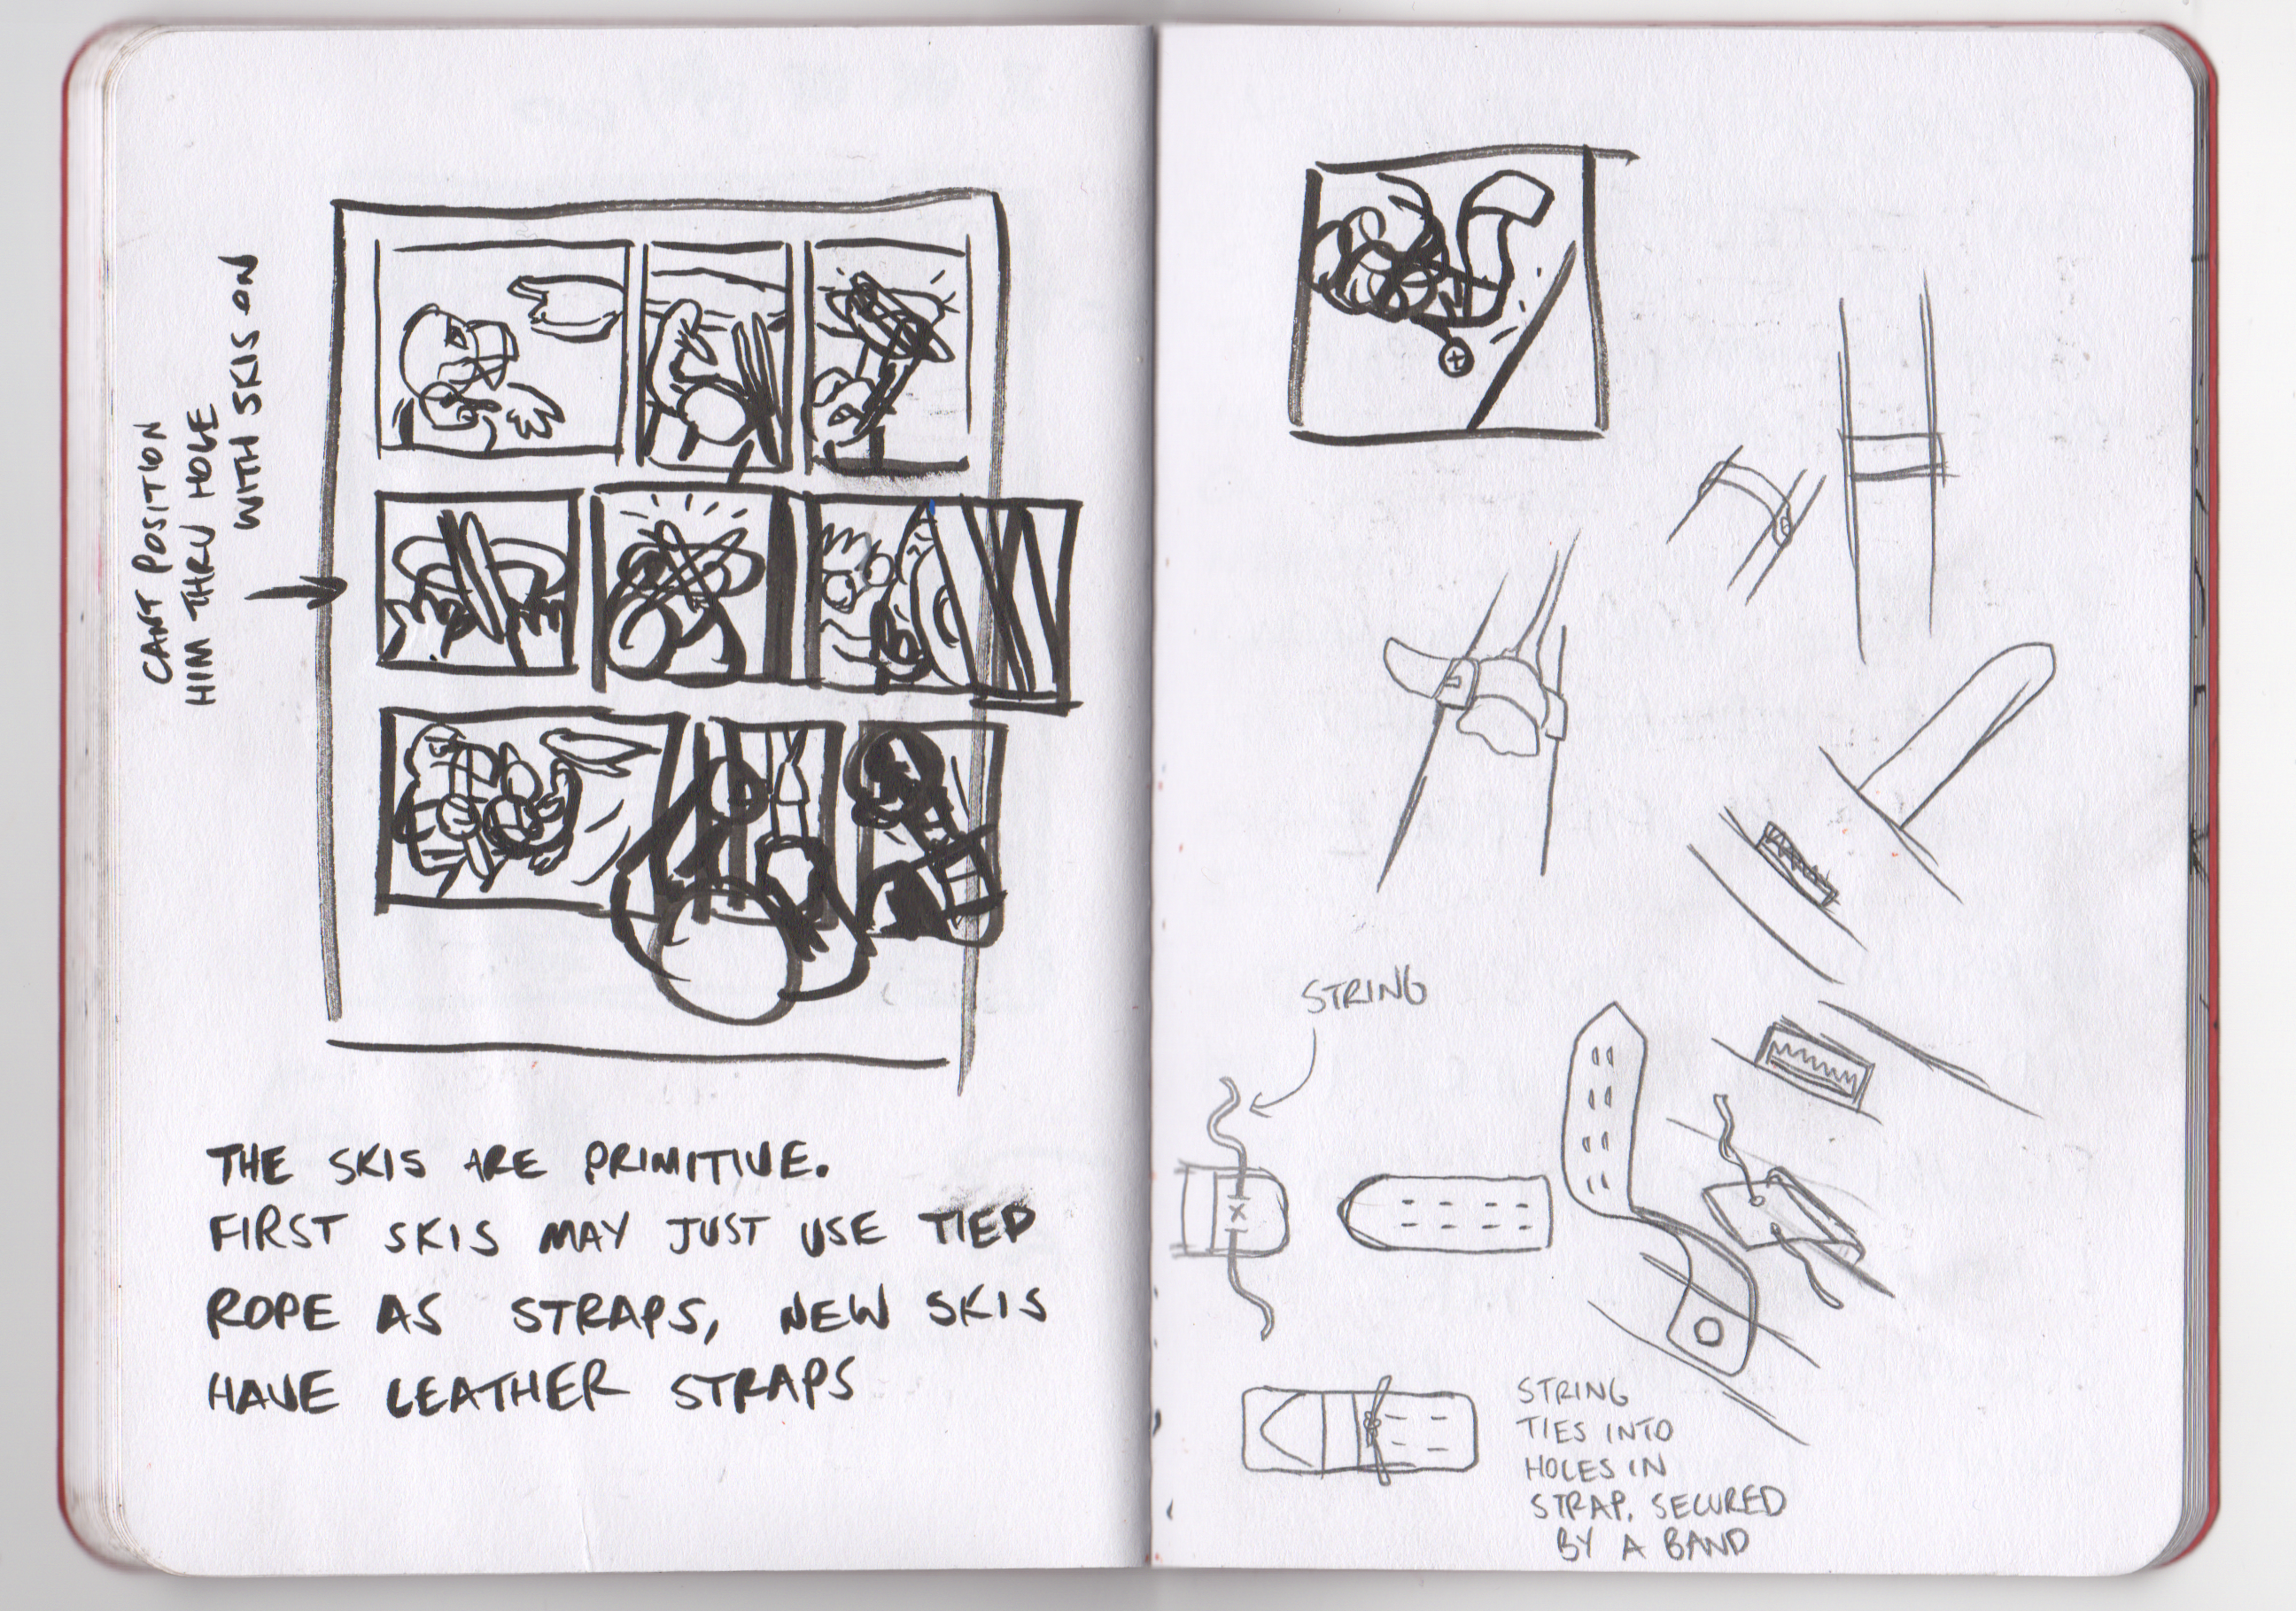 CANT POSITION
HIM THRU HOLE
WITH SKIS ON
THE SKIS ARE PRIMITIVE.
FIRST SKIS MAY JUST USE TIED
ROPE AS STRAPS, NEW SKIS
HAVE LEATHER STRAPS
STRING
STRING
TIES INTO
HOLES IN
STRAP. SECURED
BY A BAND